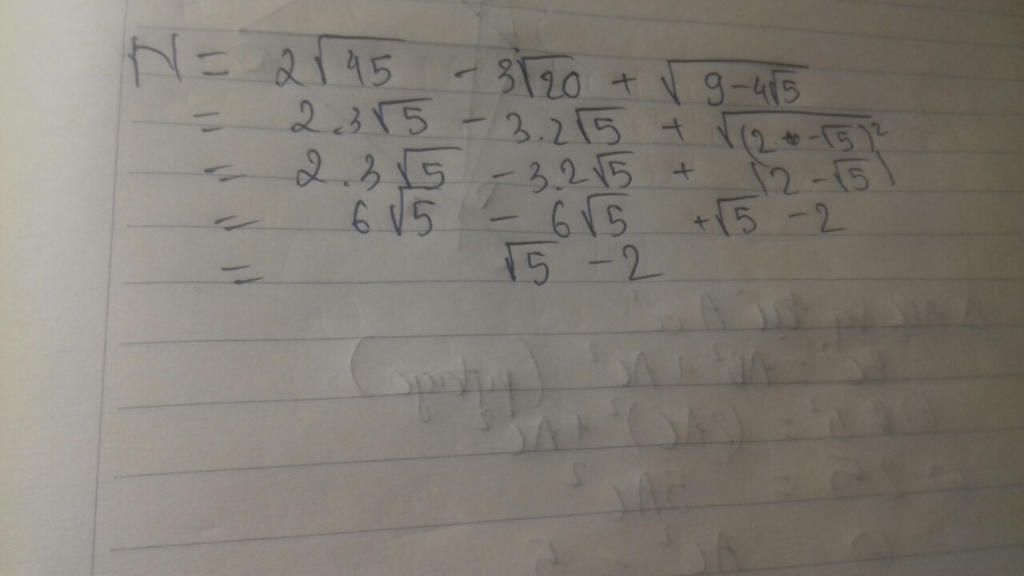 N = 2√45 - 3√20 + √(9-4√5)
= 2.3√5 - 3.2√5 + √(2-√5)²
= 2.3√5 - 3.2√5 + |2-√5|
= 6√5 - 6√5 + √5 - 2
= √5 - 2